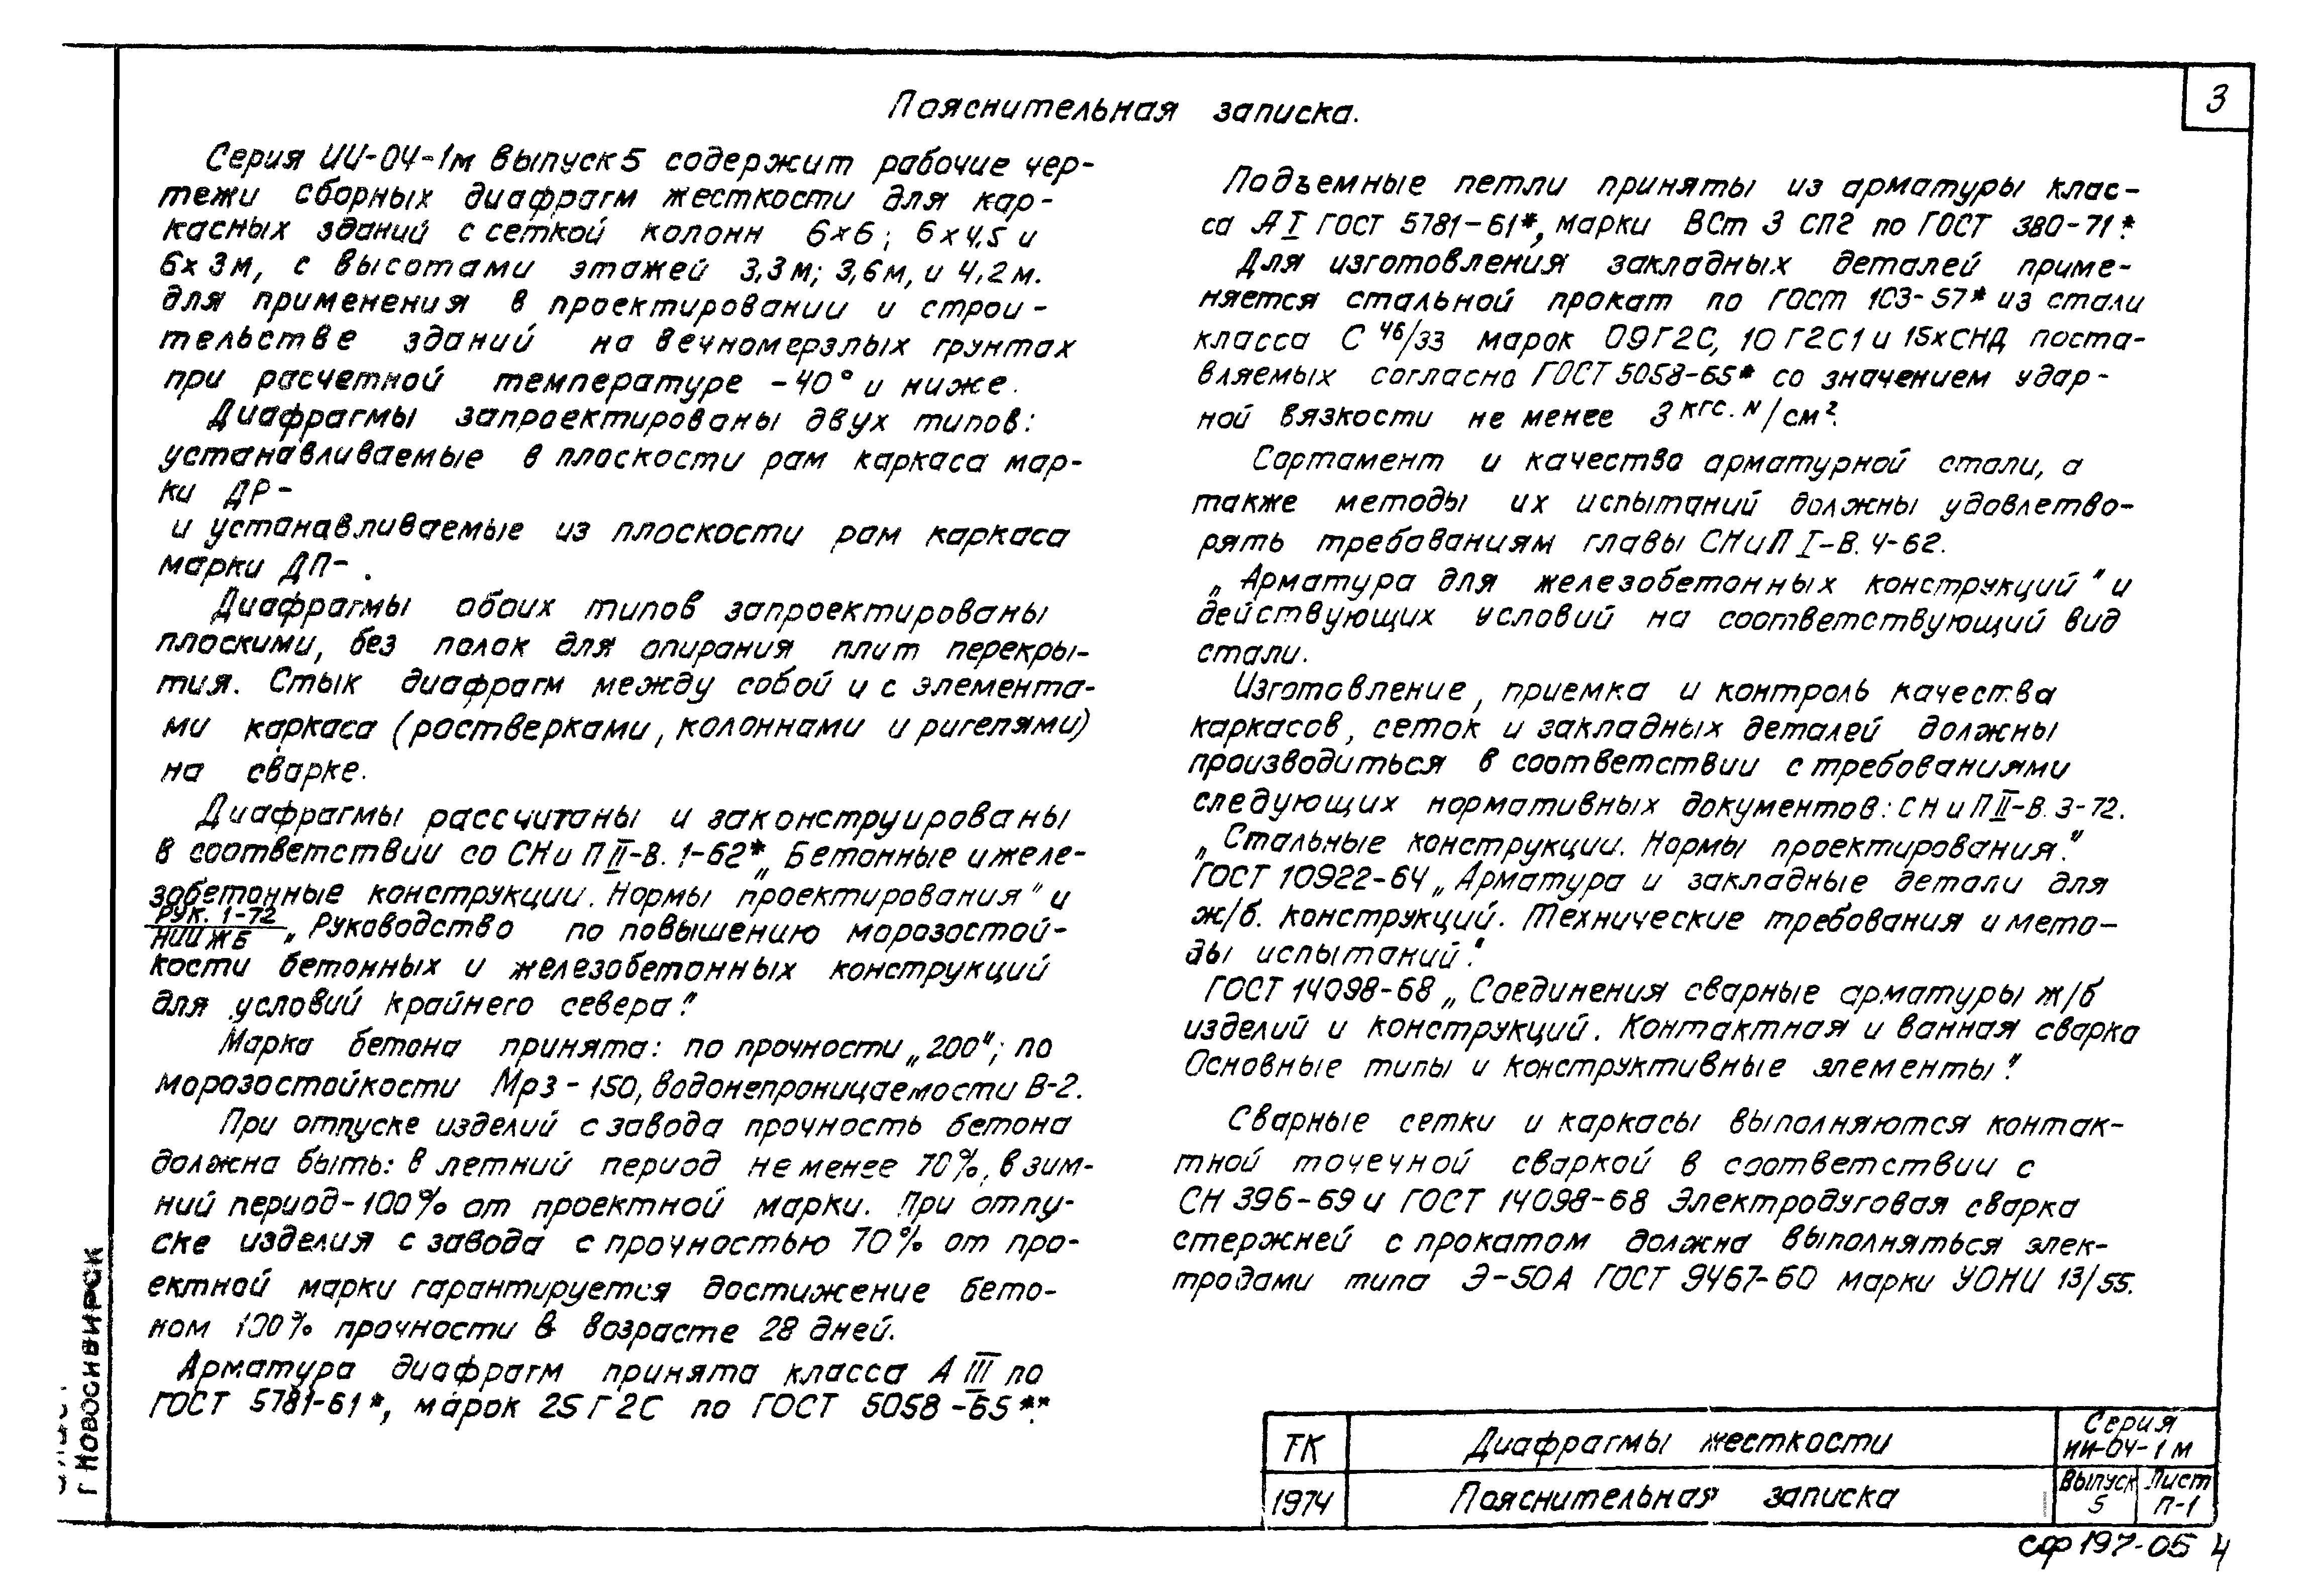 3
Пояснительная записка.
Серия ИИ-04-1м выпуск 5 содержит рабочие чер-
тежи сборных диафрагм жесткости для кар-
касных зданий с сеткой колонн 6×6; 6×4,5 и
6×3м, с высотами этажей 3,3м; 3,6м, и 4,2м.
для применения в проектировании и строи-
тельстве зданий на вечномерзлых грунтах
при расчетной температуре -40° и ниже.
Диафрагмы запроектированы двух типов:
устанавливаемые в плоскости рам каркаса мар-
ки ДР-
и устанавливаемые из плоскости рам каркаса
марки ДП- .
Диафрагмы обоих типов запроектированы
плоскими, без полок для опирания плит перекры-
тия. Стык диафрагм между собой и с элемента-
ми каркаса (ростверками, колоннами и ригелями)
на сварке.
Диафрагмы рассчитаны и законструированы
в соответствии со СНиП II-В. 1-62* „Бетонные и желе-
зобетонные конструкции. Нормы проектирования" и
РУК. 1-72
НИИЖБ „Руководство по повышению морозостой-
кости бетонных и железобетонных конструкций
для условий крайнего севера".
Марка бетона принята: по прочности „200"; по
морозостойкости Мрз-150, водонепроницаемости В-2.
При отпуске изделий с завода прочность бетона
должна быть: в летний период не менее 70%, в зим-
ний период-100% от проектной марки. При отпу-
ске изделия с завода с прочностью 70% от про-
ектной марки гарантируется достижение бето-
ном 100% прочности в возрасте 28 дней.
Арматура диафрагм принята класса А III по
ГОСТ 5781-61*, марок 25Г2С по ГОСТ 5058-65**.
Подъемные петли приняты из арматуры клас-
са А I ГОСТ 5781-61*, марки ВСт 3 СП2 по ГОСТ 380-71*.
Для изготовления закладных деталей приме-
няется стальной прокат по ГОСТ 103-57* из стали
класса С 46/33 марок 09Г2С, 10Г2С1 и 15хСНД поста-
вляемых согласно ГОСТ 5058-65* со значением удар-
ной вязкости не менее 3 кгс.м/см².
Сортамент и качество арматурной стали, а
также методы их испытаний должны удовлетво-
рять требованиям главы СНиП I-В. 4-62.
„Арматура для железобетонных конструкций" и
действующих условий на соответствующий вид
стали.
Изготовление, приемка и контроль качества
каркасов, сеток и закладных деталей должны
производиться в соответствии с требованиями
следующих нормативных документов: СНиП II-В. 3-72.
„Стальные конструкции. Нормы проектирования."
ГОСТ 10922-64 „Арматура и закладные детали для
ж/б. конструкций. Технические требования и мето-
ды испытаний".
ГОСТ 14098-68 „Соединения сварные арматуры ж/б
изделий и конструкций. Контактная и ванная сварка
Основные типы и конструктивные элементы".
Сварные сетки и каркасы выполняются контак-
тной точечной сваркой в соответствии с
СН 396-69 и ГОСТ 14098-68 Электродуговая сварка
стержней с прокатом должна выполняться элек-
тродами типа Э-50А ГОСТ 9467-60 марки УОНИ 13/55.
г Новосибирск
ТК Диафрагмы жесткости Серия ИИ-04-1м
1974 Пояснительная записка Выпуск 5 Лист П-1
сф 197-05 4